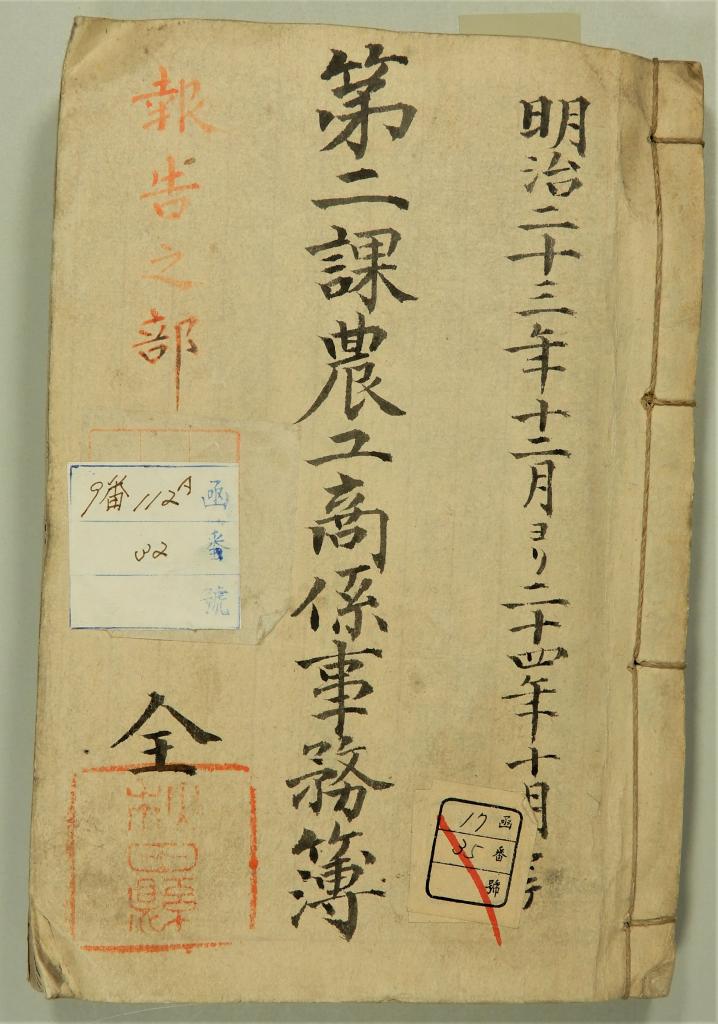 明治二十三年十二月ヨリ二十四年十月
第二課農工商係事務簿
報告之部
全
函 9番112A
番 32
號
函 17
番 35
號
秋田縣